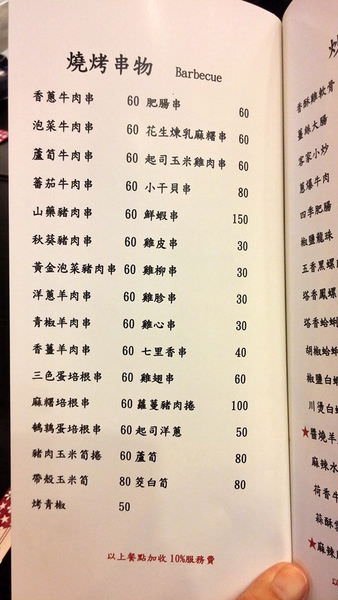 燒烤串物 Barbecue
香蔥牛肉串 60 肥腸串 60
泡菜牛肉串 60 花生煉乳麻糬串 60
蘆筍牛肉串 60 起司玉米雞肉串 60
蕃茄牛肉串 60 小干貝串 80
山藥豬肉串 60 鮮蝦串 150
秋葵豬肉串 60 雞皮串 30
黃金泡菜豬肉串 60 雞柳串 30
洋蔥羊肉串 60 雞胗串 30
青椒羊肉串 60 雞心串 30
香薑羊肉串 60 七里香串 40
三色蛋培根串 60 雞翅串 60
麻糬培根串 60 蘿蔓豬肉捲 100
鵪鶉蛋培根串 60 起司洋蔥 50
豬肉玉米筍捲 80 蘆筍 80
帶殼玉米筍 80 筊白筍 80
烤青椒 50
以上餐點加收10%服務費
香酥雞軟骨
薑絲大腸
客家小炒
蔥爆牛肉
四季肥腸
椒鹽龍珠
五香黑螺
塔香鳳螺
塔香蛤蜊
胡椒蛤蜊
椒鹽白
川燙白
★醬燒羊
麻辣水
荷香牛
蒜酥
★麻辣
以